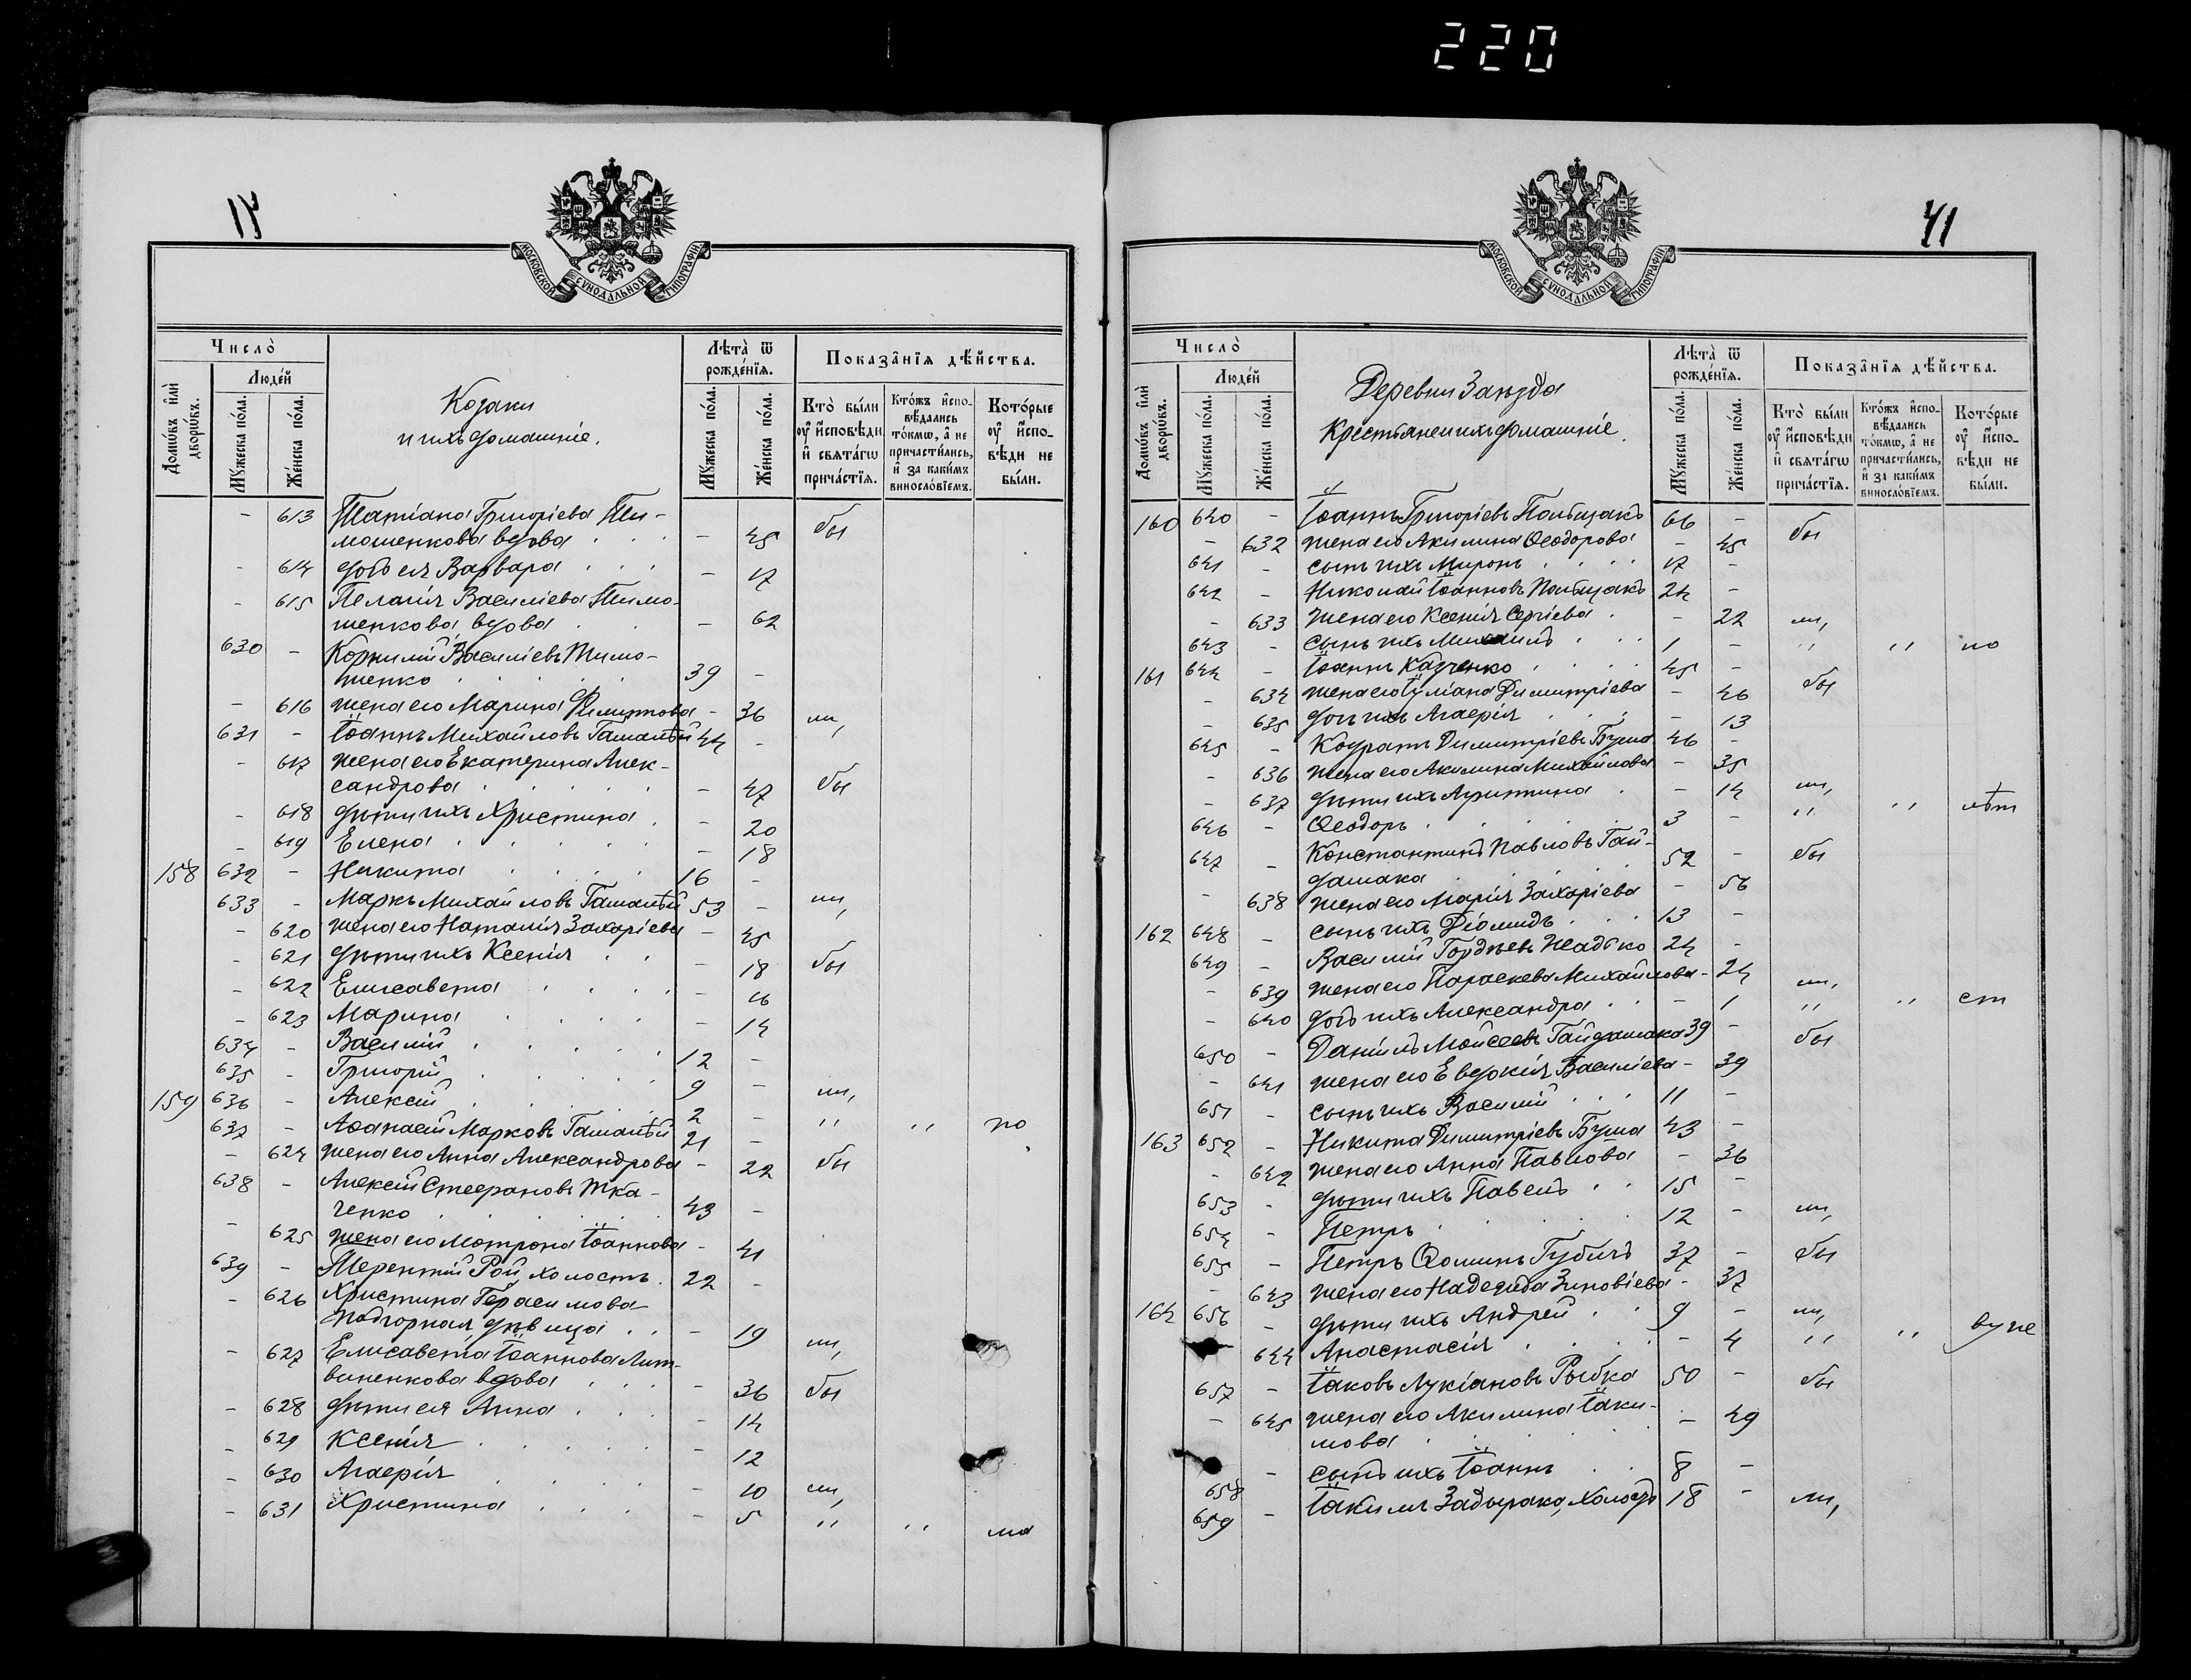 220
МОСКОВСКОЙ СѴНОДАЛЬНОЙ ТИПОГРАФІИ
Число̀
Люде́й
Домѡ́въ и҆лѝ дворѡ́въ.
Мꙋ́жеска по́ла.
Же́нска по́ла.
Козаки
и ихъ домашніе.
Лѣта̀ ѿ рожде́нїѧ.
Мꙋ́жеска по́ла.
Же́нска по́ла.
Показа̑нїѧ дѣ́йства.
Кто̀ бы́ли ᲂу҆ и҆сповѣ́ди и҆ свѧта́гѡ прича́стїѧ.
Кто́жъ и҆спо-вѣ́дались то́кмѡ, а҆ не причасти́лись, и҆ за каки́мъ винослѻ́вїемъ.
Кото́рые ᲂу҆ и҆спо-вѣ́ди не бы́ли.
- 613 Татіана Григоріева Ти-
мошенкова вдова - 45 бы
- 614 дочь ея Варвара - 17
- 615 Пелагія Василіева Тимо-
шенкова, вдова - 62
630 - Корнилій Василіевъ Тимо-
шенко 39 -
- 616 жена его Марина Филиппова - 36 ли,
631 - Іоаннъ Михайловъ Гамалѣй 44 -
- 617 жена его Екатерина Алек-
сандрова - 47 бы
- 618 дѣти ихъ Христина - 20
- 619 Елена - 18
158 632 - Никита 16 -
633 - Маркъ Михайловъ Гамалѣй 53 - ли,
- 620 жена его Наталія Захаріева - 45
- 621 дѣти ихъ Ксенія - 18 бы
- 622 Елисавета - 16
- 623 Марина - 14
634 - Василій 12 -
635 - Григорій 9 -
159 636 - Алексій 2 - ли,
637 - Аѳанасій Марковъ Гамалѣй 21 - " " по
- 624 жена его Анна Александрова - 22 бы
638 - Алексій Стефановъ Тка-
ченко 43 -
- 625 жена его Мотрона Іоаннова - 41
639 - Терентій Рой холостъ 22 -
- 626 Христина Герасимова
Подгорная дѣвица - 19 ли,
- 627 Елисавета Іоаннова Лит-
виненкова вдова - 36 бы
- 628 дѣти ея Анна - 14
- 629 Ксенія - 12
- 630 Агафія - 10 ли,
- 631 Христина - 5 " " ма
41
МОСКОВСКОЙ СѴНОДАЛЬНОЙ ТИПОГРАФІИ
Число̀
Люде́й
Домѡ́въ и҆лѝ дворѡ́въ.
Мꙋ́жеска по́ла.
Же́нска по́ла.
Деревни
Крестьяне и ихъ домашніе.
Лѣта̀ ѿ рожде́нїѧ.
Мꙋ́жеска по́ла.
Же́нска по́ла.
Показа̑нїѧ дѣ́йства.
Кто̀ бы́ли ᲂу҆ и҆сповѣ́ди и҆ свѧта́гѡ прича́стїѧ.
Кто́жъ и҆спо-вѣ́дались то́кмѡ, а҆ не причасти́лись, и҆ за каки́мъ винослѻ́вїемъ.
Кото́рые ᲂу҆ и҆спо-вѣ́ди не бы́ли.
160 640 - Іоаннъ Григоріевъ 66 -
- 632 жена его Акилина Ѳеодорова - 45 бы
641 - сынъ ихъ Миронъ 17 -
642 - Николай Іоанновъ 24 -
- 633 жена его Ксенія Сергіева - 22 ли,
643 - сынъ ихъ Михаилъ 1 - " " по
161 644 - Іоаннъ 45 -
- 634 жена его Іуліана Димитріева - 46 бы
- 635 дочь ихъ Агафія - 13
645 - Кодратъ Димитріевъ Буша 46 -
- 636 жена его Акилина Михайлова - 35
- 637 дѣти ихъ - 14 ли,
646 - Ѳеодоръ 3 - " " лѣт
647 - Константинъ Павловъ Гай-
дамака 52 - бы
- 638 жена его Марія Захаріева - 56
162 648 - сынъ ихъ Діомидъ 13 -
649 - Василій Гордѣевъ 24 -
- 639 жена его Параскева Михайлова - 24 ли,
- 640 дочь ихъ Александра - 1 " " ст
650 - Даніилъ Моѵсеевъ Гайдамака 39 - бы
- 641 жена его Евдокія Василіева - 39
651 - сынъ ихъ Василій 11 -
163 652 - Никита Димитріевъ Буша 43 -
- 642 жена его Анна Павлова - 36
653 - дѣти ихъ Павелъ 15 -
654 - Петръ 12 - ли,
655 - Петръ Ѳоминъ 37 - бы
- 643 жена его Надежда Зиновіева - 37
164 656 - дѣти ихъ Андрей 9 - ли,
644 Анастасія - 4 " "
657 - Іаковъ Лукіановъ Рыбка 50 - бы
- 645 жена его Акилина Іаки-
мова - 49
658 - сынъ ихъ Іоаннъ 8 -
659 - Іакимъ Задырака, холостъ 18 - ли,